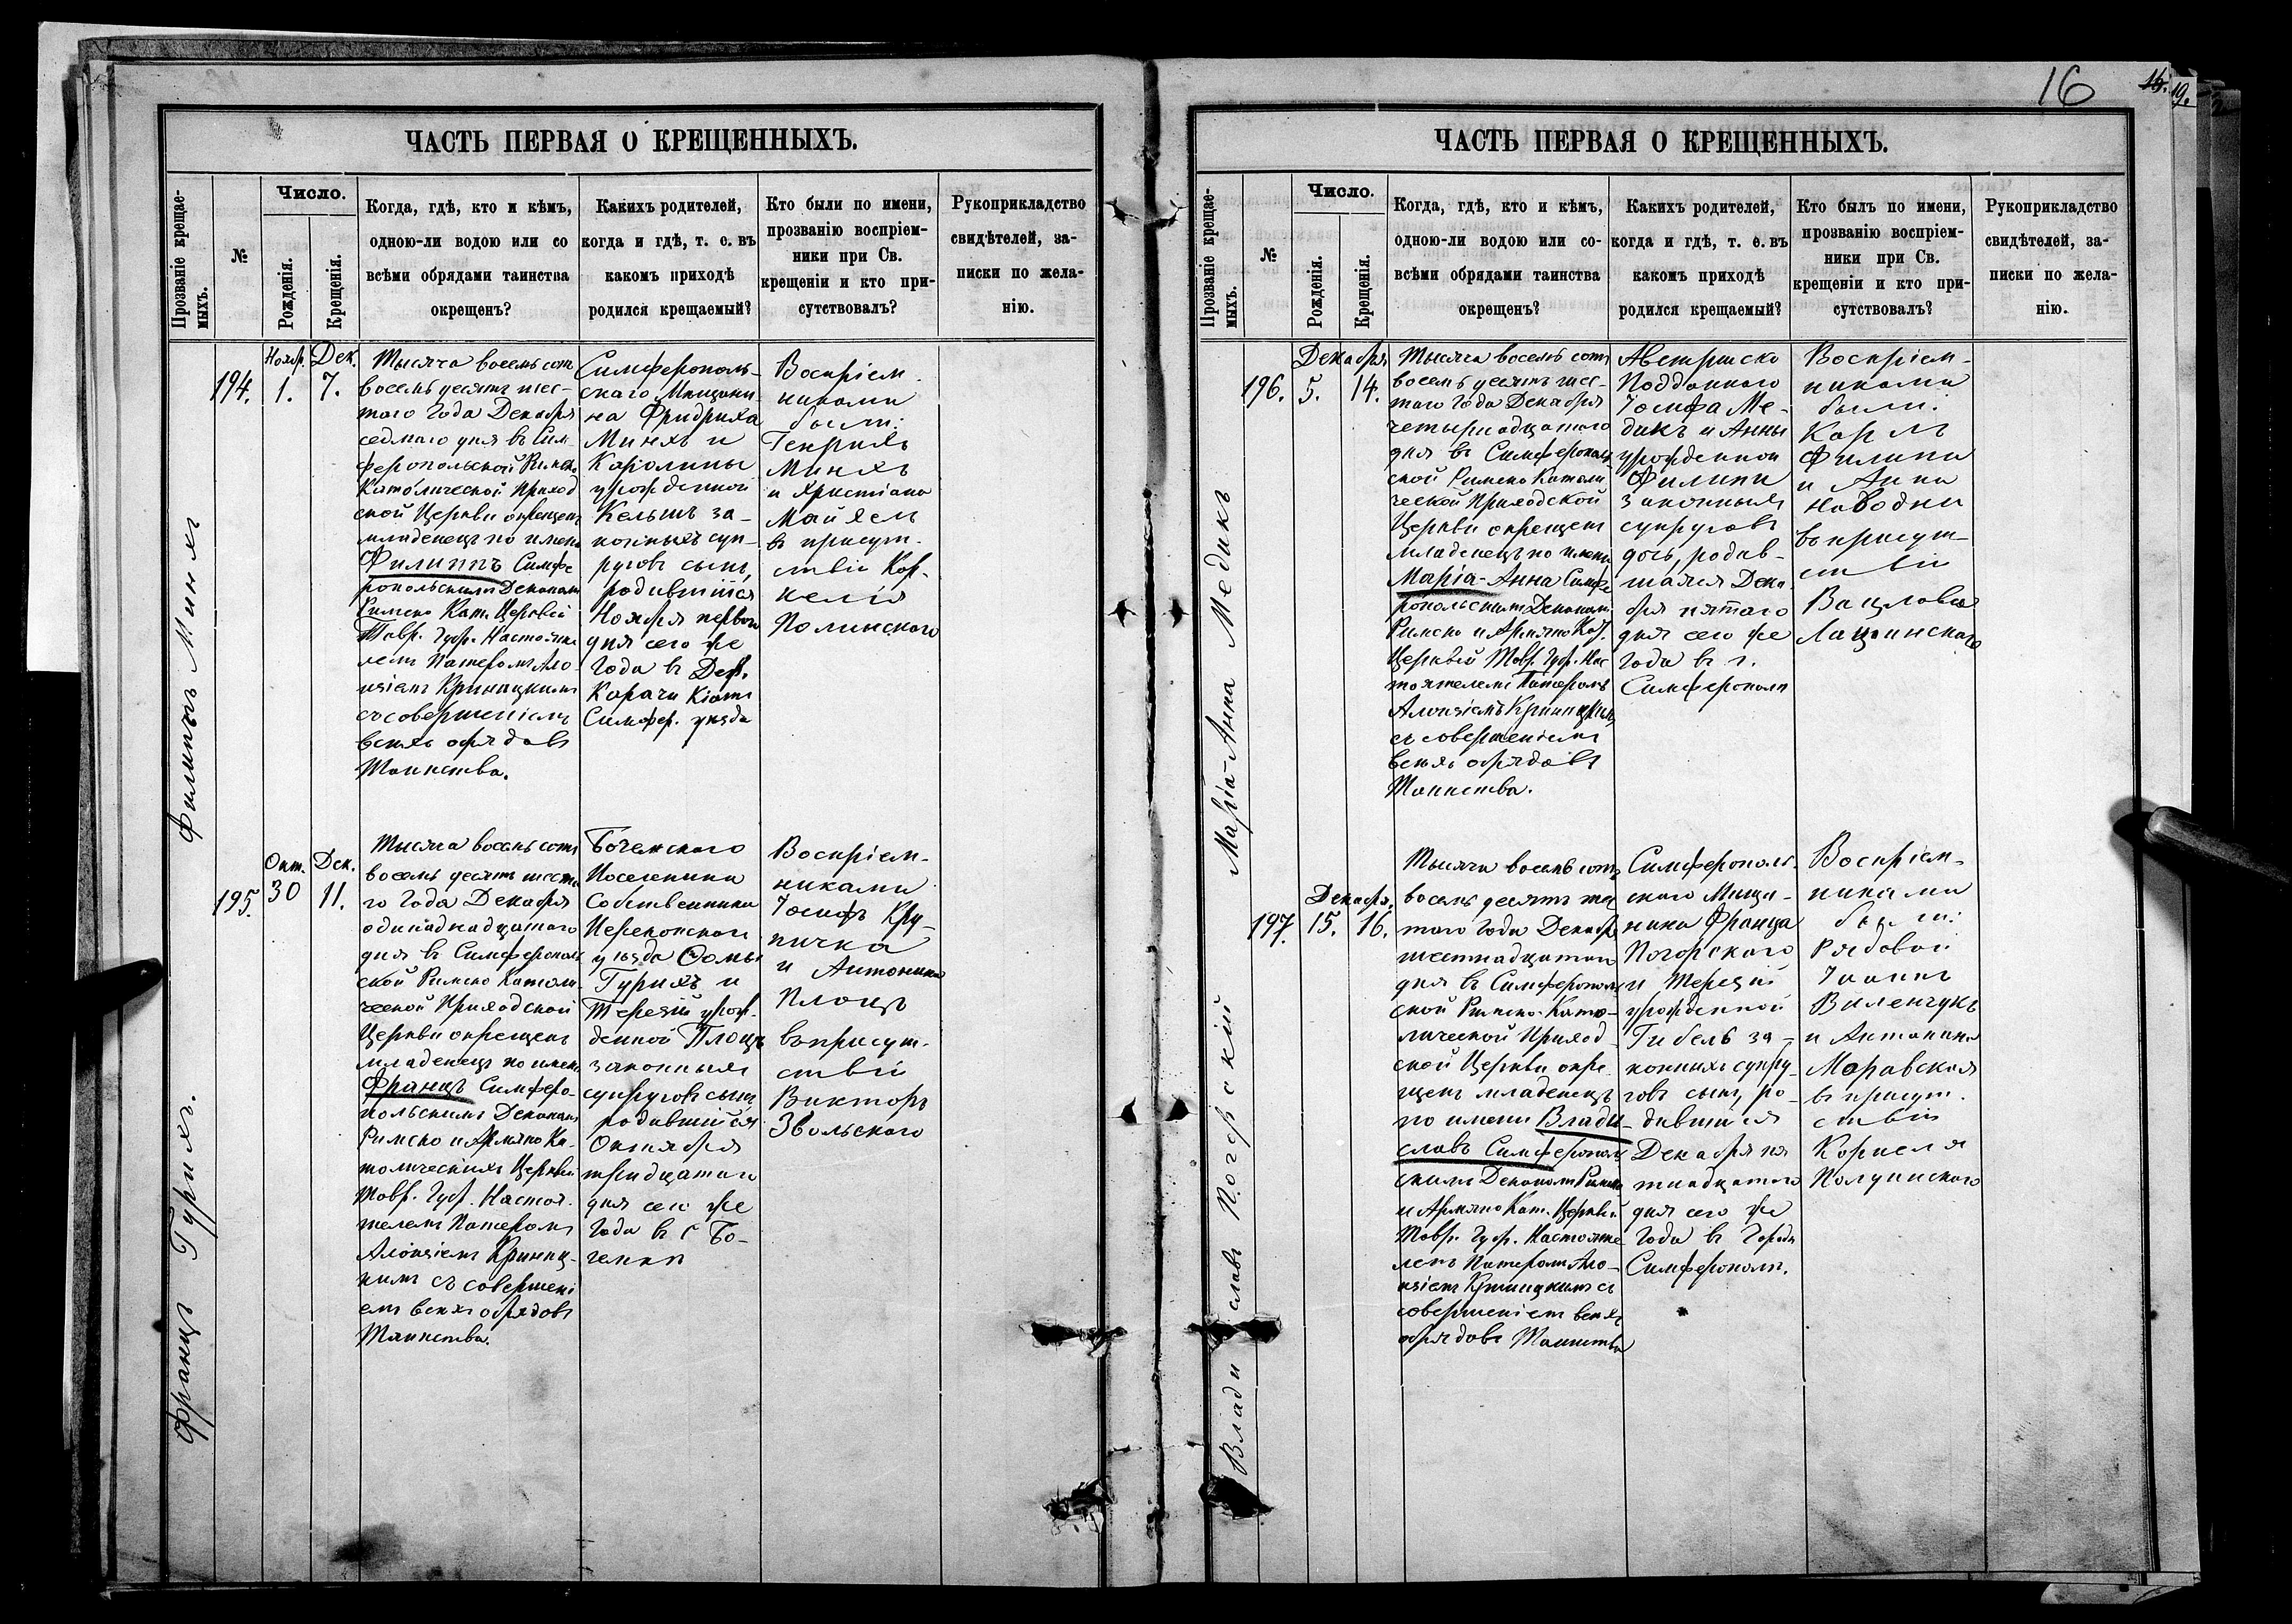 ЧАСТЬ ПЕРВАЯ О КРЕЩЕННЫХЪ.
Прозваніе крещае-
мыхъ.
№
Число.
Рожденія.
Крещенія.
Когда, гдѣ, кто и кѣмъ,
одною-ли водою или со
всѣми обрядами таинства
окрещенъ?
Какихъ родителей,
когда и гдѣ, т. е. въ
какомъ приходѣ
родился крещаемый?
Кто были по имени,
прозванію воспріем-
ники при Св.
крещеніи и кто при-
сутствовалъ?
Рукоприкладство
свидѣтелей, за-
писки по жела-
нію.
Филиппъ Минхъ
194.
Нояб.
1.
Дек.
7.
Тысяча восемь сотъ
восемь десятъ шес-
таго Года Декабря
седмаго дня въ Сим
феропольской Римско
Католической Приход
ской Церкви окрещенъ
младенецъ по имени
Филиппъ Симфе
ропольскимъ Деканомъ
Римско Кат. Церквей
Тавр. Губ. Настояте
лемъ Патеромъ Ало
изіемъ Криницкимъ
съ совершеніемъ
всехъ обрядовъ
Таинства.
Симферополь-
скаго Мещани-
на Фридриха
Минхъ и
Каролины
урожденной
Кельшъ за-
конныхъ суп-
руговъ сынъ,
родившійся
Ноября перваго
дня сего же
Года въ Дер.
Карачи Кіятъ
Симфер. уезда
Воспріем-
никами
были:
Генрихъ
Минхъ
и Христіана
Майхель
въ присут-
ствіи Кор-
нелія
Полинского
Францъ Гурихъ.
195.
Окт.
30
Дек.
11.
Тысяча восемь сотъ
восемь десятъ шеста
го Года Декабря
одинадцатаго
дня въ Симферополь
ской Римско Католи
ческой Приходской
Церкви окрещенъ
младенецъ по имени
Францъ Симферо-
польскимъ Деканомъ
Римско и Армяно Ка-
толическихъ Церквей
Тавр. Губ. Настоя-
телемъ Патеромъ
Алоизіемъ Криниц-
кимъ съ совершені
емъ всехъ обрядовъ
Таинства.
Богемского
Поселенина
Собственника
Перекопскаго
уезда Ѳомы
Гурихъ и
Терезіи урож-
денной Плоцъ
законныхъ
супруговъ сынъ
родившийся
Октября
тридцатаго
дня сего же
Года въ с Бо-
гемки
Воспріем-
никами
Іосифъ Кру-
пичка
и Антонина
Плоцъ
въ присут-
ствіи
Викторъ
Звольского
16
ЧАСТЬ ПЕРВАЯ О КРЕЩЕННЫХЪ.
Прозваніе крещае-
мыхъ.
№
Число.
Рожденія.
Крещенія.
Когда, гдѣ, кто и кѣмъ,
одною-ли водою или со-
всѣми обрядами таинства
окрещенъ?
Какихъ родителей,
когда и гдѣ, т. е. въ
какомъ приходѣ
родился крещаемый?
Кто былъ по имени,
прозванію воспріем-
ники при Св.
крещеніи и кто при-
сутствовалъ?
Рукоприкладство
свидѣтелей, за-
писки по жела-
нію.
Марія-Анна Медикъ
196.
Декабря
5.
14.
Тысяча восемь сотъ
восемь десятъ шес-
таго Года Декабря
четырнадцатаго
дня въ Симферополь
ской Римско Католи
ческой Приходской
Церкви окрещенъ
младенецъ по имени
Марія-Анна Симфе
ропольскимъ Деканом.
Римско и Армяно Кат.
Церквей Тавр. Губ. Нас
тоятелемъ Патеромъ
Алоизіемъ Криницкимъ
съ совершеніемъ
всехъ обрядовъ
Таинства.
Австрійско
Подданного
Іосифа Ме-
дикъ и Анны
урожденной
Филипи
законныхъ
супруговъ
дочь, родив-
шаяся Дека
бря пятаго
дня сего же
Года въ г.
Симферополи
Воспріем-
никами
были:
Карлъ
Филипи
и Анна
Наводни
въ присут-
ствіи
Вацлава
Лащинскаго
Владиславъ Погорскій
197.
Декабря.
15.
16.
Тысяча восемь сотъ
восемь десятъ шес
таго Года Декабр
шестнадцатаго
дня въ Симферополь
ской Римско-Като-
лической Приход-
ской Церкви окре-
щенъ младенецъ
по имени Влади-
славъ Симферополь
скимъ Деканомъ Римско
и Армяно Кат. Церквей
Тавр. Губ. Настояте
лемъ Патеромъ Ало-
изіемъ Криницкимъ съ
совершеніемъ всехъ
обрядовъ Таинства
Симферополь-
ского Меща-
нина Франца
Погорского
и Терезіи
урожденной
Гибель за-
конныхъ супру-
говъ сынъ, ро-
дившійся
Декабря пя
тнадцатаго
дня сего же
Года въ Городе
Симферополи.
Воспріем-
никами
были:
Рядовой
Іоаннъ
Виленчукъ
и Антонина
Моравская
въ присут-
ствіи
Корнеля
Полунинского